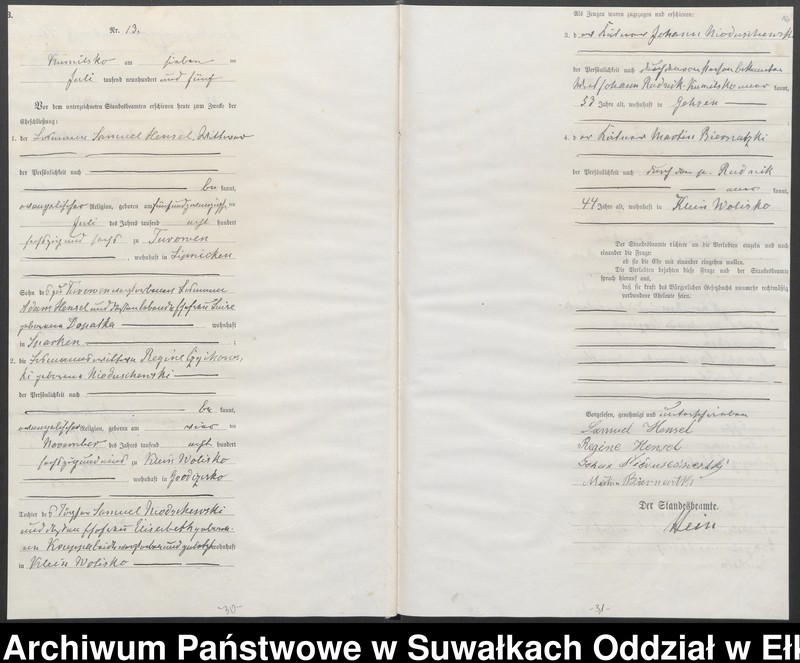 B.
Nr. 13.
Kumilsko am sieben ten
Juli tausend neunhundert und fünf
Vor dem unterzeichneten Standesbeamten erschienen heute zum Zwecke der
Eheschließung:
1. der Losmann Samuel Hensel, Wittwer
der Persönlichkeit nach
be kannt,
evangelischer Religion, geboren am fünfundzwanzigsten
Juli des Jahres tausend acht hundert
sechszig und sechs zu Turowen
, wohnhaft in Lipnicken
Sohn des zu Turowen verstorbenen Losmann
Adam Hensel und dessen lebende Ehefrau
geborene Donatka wohnhaft
in
2. die Losmannswittwe Regine
geborene Nioduschewski
der Persönlichkeit nach
be kannt,
evangelischer Religion, geboren am vier ten
November des Jahres tausend acht hundert
sechszig und eins zu Klein Wolisko
, wohnhaft in
Tochter des Samuel
und dessen Ehefrau Elisabeth gebore-
nen wohnhaft
in Klein Wolisko
-30-
Als Zeugen waren zugezogen und erschienen:
3. der Kätner Johann Nioduschewski
der Persönlichkeit nach durch den von Person bekannten
Wirt Johann Rudnik-Kumilsko kannt,
53 Jahre alt, wohnhaft in Gehsen
4. der Kätner Martin Biernatzki
der Persönlichkeit nach durch den p. Rudnik
kannt,
44 Jahre alt, wohnhaft in Klein Wolisko
Der Standesbeamte richtete an die Verlobten einzeln und nach
einander die Frage:
ob sie die Ehe mit einander eingehen wollen.
Die Verlobten bejahten diese Frage und der Standesbeamte
sprach hierauf aus,
daß sie kraft des Bürgerlichen Gesetzbuchs nunmehr rechtmäßig
verbundene Eheleute seien.
Vorgelesen, genehmigt und unterschrieben
Samuel Hensel
Regine Hensel
Martin Biernatzki
Der Standesbeamte.
Hein
-31-
Archiwum Państwowe w Suwałkach Oddział w Ełk